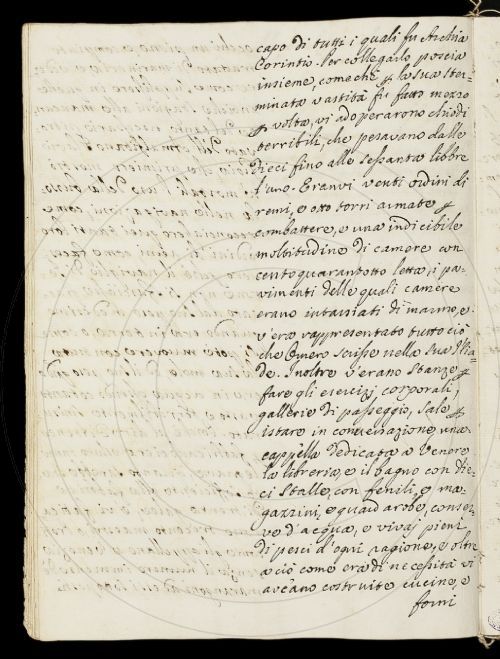 capo di tutti i quali fu Archia
Corintio. Per collegarlo poscia
insieme, come che p la sua ster-
minata vastità fu fatto mezzo
p volta, vi adoperarono chiodi
terribili, che pesavano dalle
Dieci fino alle sessanta libbre
l'uno. Eranvi venti ordini di
remi, e otto torri armate p
combattere, e una indicibile
moltitudine di camere con
cento quarantotto letta, i pa-
vimenti delle quali camere
erano intarsiati di marmo, e
v'era rappresentato tutto ciò
che Omero scrisse nella sua Ilia
de. Inoltre v'erano stanze p
fare gli esercizj corporali,
gallerie di passeggio, sale p
istare in conversazione, una
cappella dedicata a Venere
la libreria, e il bagno con die-
ci stalle, con fenili, e ma-
gazzini, e guardarobe, conser
ve d'acqua, e vivaj pieni
di pesci d'ogni ragione, e oltre
a ciò come era di necessità vi
avéano costruite cucine, e
forni